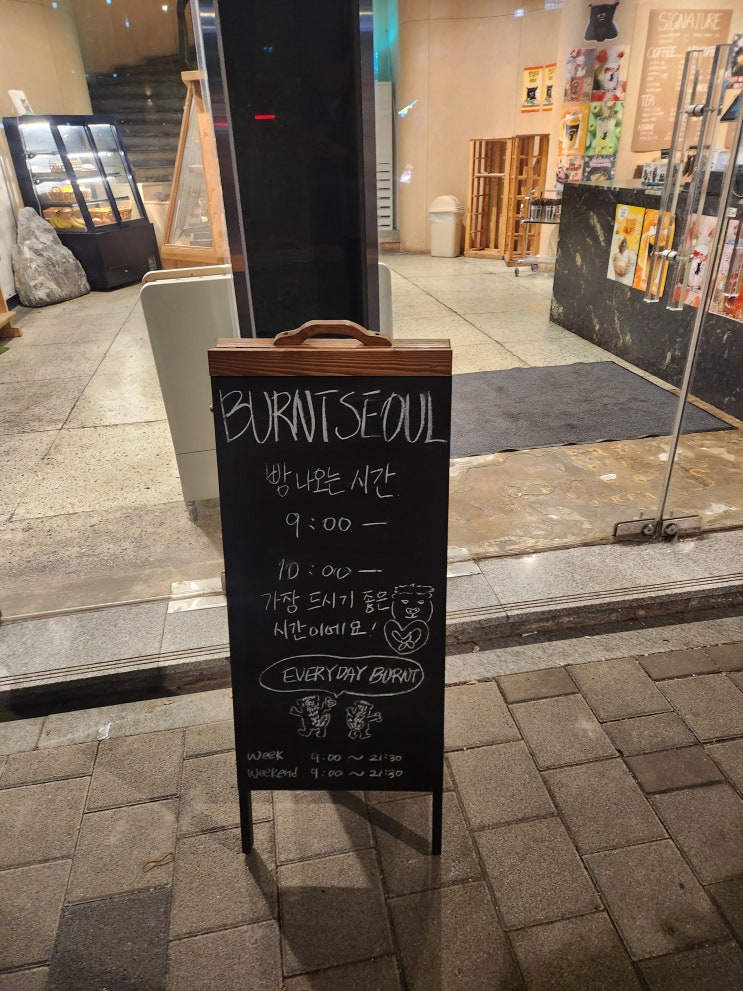 SIGNATURE
COFFEE
TEA
BURNT SEOUL
빵 나오는 시간
9:00 —
10:00 —
가장 드시기 좋은
시간이에요!
EVERYDAY BURNT
Week 9:00 ~ 21:30
Weekend 9:00 ~ 21:30